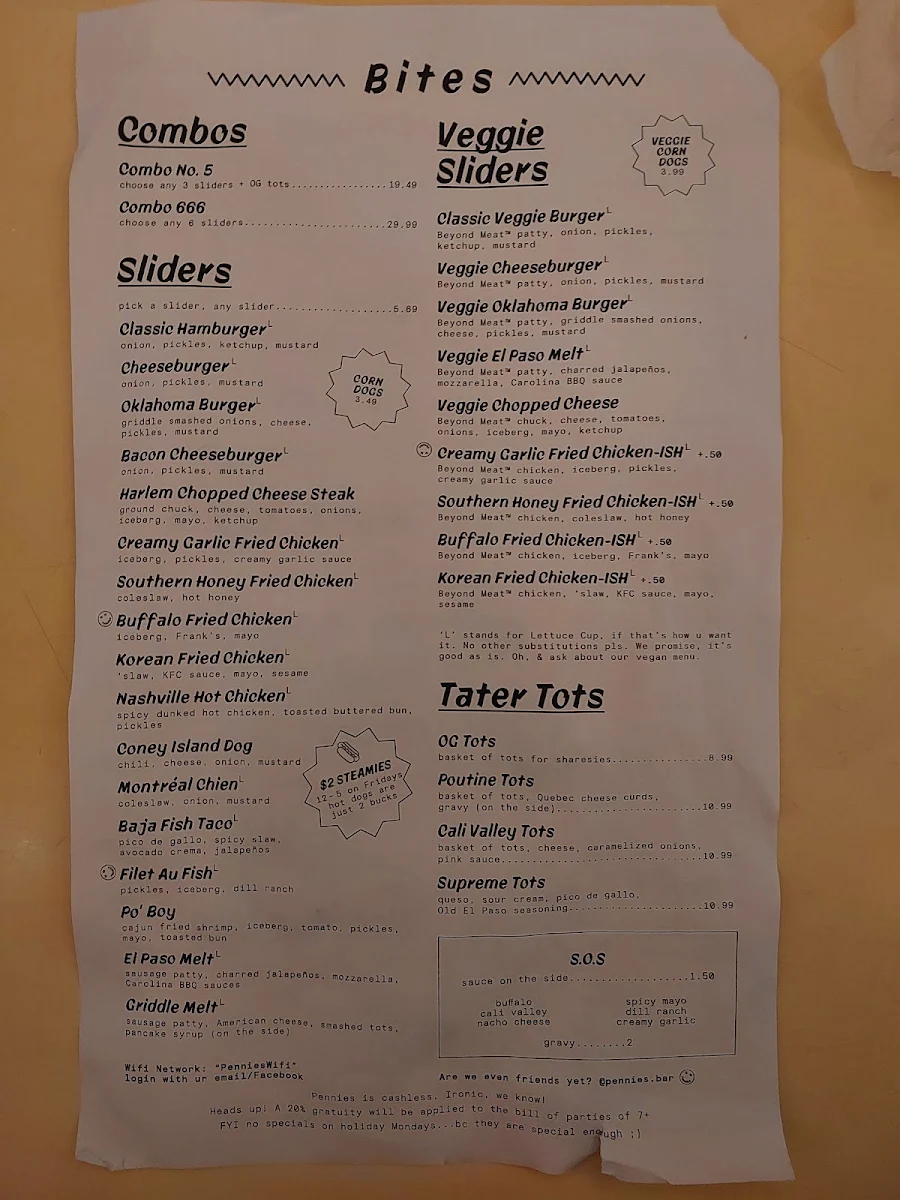 Bites
Combos
Combo No. 5
choose any 3 sliders + OG tots................19.49
Combo 666
choose any 6 sliders.......................29.99
Sliders
pick a slider, any slider...................5.69
Classic Hamburger L
onion, pickles, ketchup, mustard
Cheeseburger L
onion, pickles, mustard
CORN
DOGS
3.49
Oklahoma Burger L
griddle smashed onions, cheese,
pickles, mustard
Bacon Cheeseburger L
onion, pickles, mustard
Harlem Chopped Cheese Steak
ground chuck, cheese, tomatoes, onions,
iceberg, mayo, ketchup
Creamy Garlic Fried Chicken L
iceberg, pickles, creamy garlic sauce
Southern Honey Fried Chicken L
coleslaw, hot honey
Buffalo Fried Chicken L
iceberg, Frank's, mayo
Korean Fried Chicken L
'slaw, KFC sauce, mayo, sesame
Nashville Hot Chicken L
spicy dunked hot chicken, toasted buttered bun,
pickles
Coney Island Dog
chili, cheese, onion, mustard
Montréal Chien L
coleslaw, onion, mustard
$2 STEAMIES
12-5 on Fridays
hot dogs are
just 2 bucks
Baja Fish Taco L
pico de gallo, spicy slaw,
avocado crema, jalapeños
Filet Au Fish L
pickles, iceberg, dill ranch
Po' Boy
cajun fried shrimp, iceberg, tomato, pickles,
mayo, toasted bun
El Paso Melt L
sausage patty, charred jalapeños, mozzarella,
Carolina BBQ sauces
Griddle Melt L
sausage patty, American cheese, smashed tots,
pancake syrup (on the side)
Wifi Network: "PenniesWifi"
login with ur email/Facebook
Veggie
Sliders
VEGGIE
CORN
DOGS
3.99
Classic Veggie Burger L
Beyond Meat™ patty, onion, pickles,
ketchup, mustard
Veggie Cheeseburger L
Beyond Meat™ patty, onion, pickles, mustard
Veggie Oklahoma Burger L
Beyond Meat™ patty, griddle smashed onions,
cheese, pickles, mustard
Veggie El Paso Melt L
Beyond Meat™ patty, charred jalapeños,
mozzarella, Carolina BBQ sauce
Veggie Chopped Cheese
Beyond Meat™ chuck, cheese, tomatoes,
onions, iceberg, mayo, ketchup
Creamy Garlic Fried Chicken-ISH L +.50
Beyond Meat™ chicken, iceberg, pickles,
creamy garlic sauce
Southern Honey Fried Chicken-ISH L +.50
Beyond Meat™ chicken, coleslaw, hot honey
Buffalo Fried Chicken-ISH L +.50
Beyond Meat™ chicken, iceberg, Frank's, mayo
Korean Fried Chicken-ISH L +.50
Beyond Meat™ chicken, 'slaw, KFC sauce, mayo,
sesame
'L' stands for Lettuce Cup, if that's how u want
it. No other substitutions pls. We promise, it's
good as is. Oh, & ask about our vegan menu.
Tater Tots
OG Tots
basket of tots for sharesies................8.99
Poutine Tots
basket of tots, Quebec cheese curds,
gravy (on the side)........................10.99
Cali Valley Tots
basket of tots, cheese, caramelized onions,
pink sauce.................................10.99
Supreme Tots
queso, sour cream, pico de gallo,
Old El Paso seasoning......................10.99
S.O.S
sauce on the side...................1.50
buffalo spicy mayo
cali valley dill ranch
nacho cheese creamy garlic
gravy........2
Are we even friends yet? @pennies.bar
Pennies is cashless. Ironic, we know!
Heads up! A 20% gratuity will be applied to the bill of parties of 7+
FYI no specials on holiday Mondays...bc they are special enough ;)